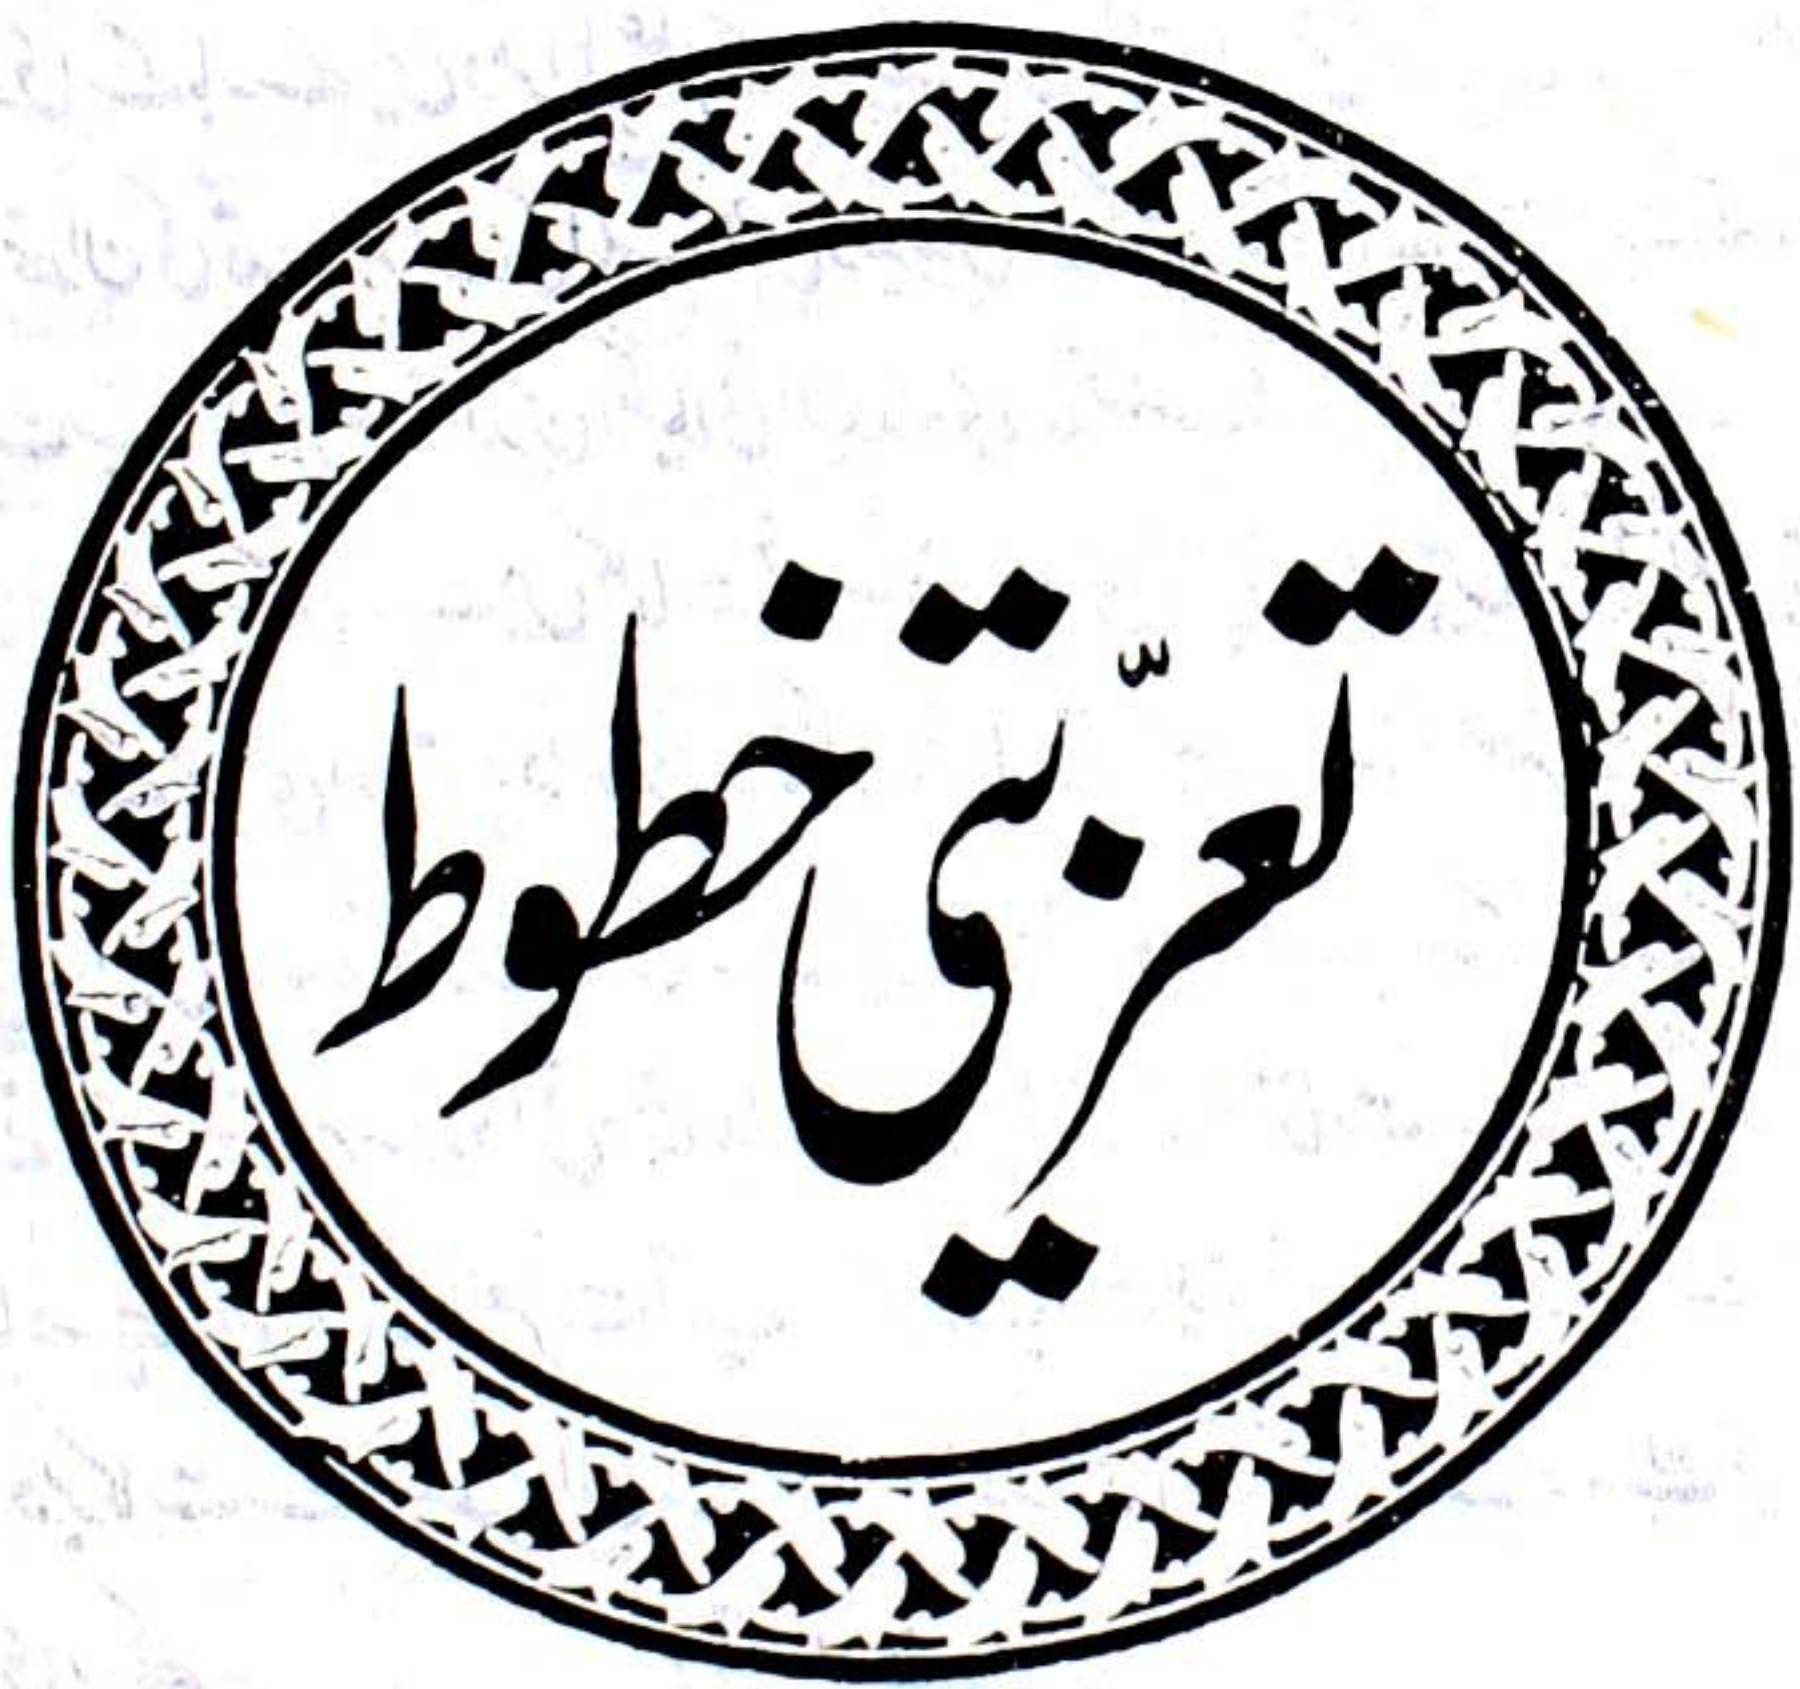 تعزیتی خطوط